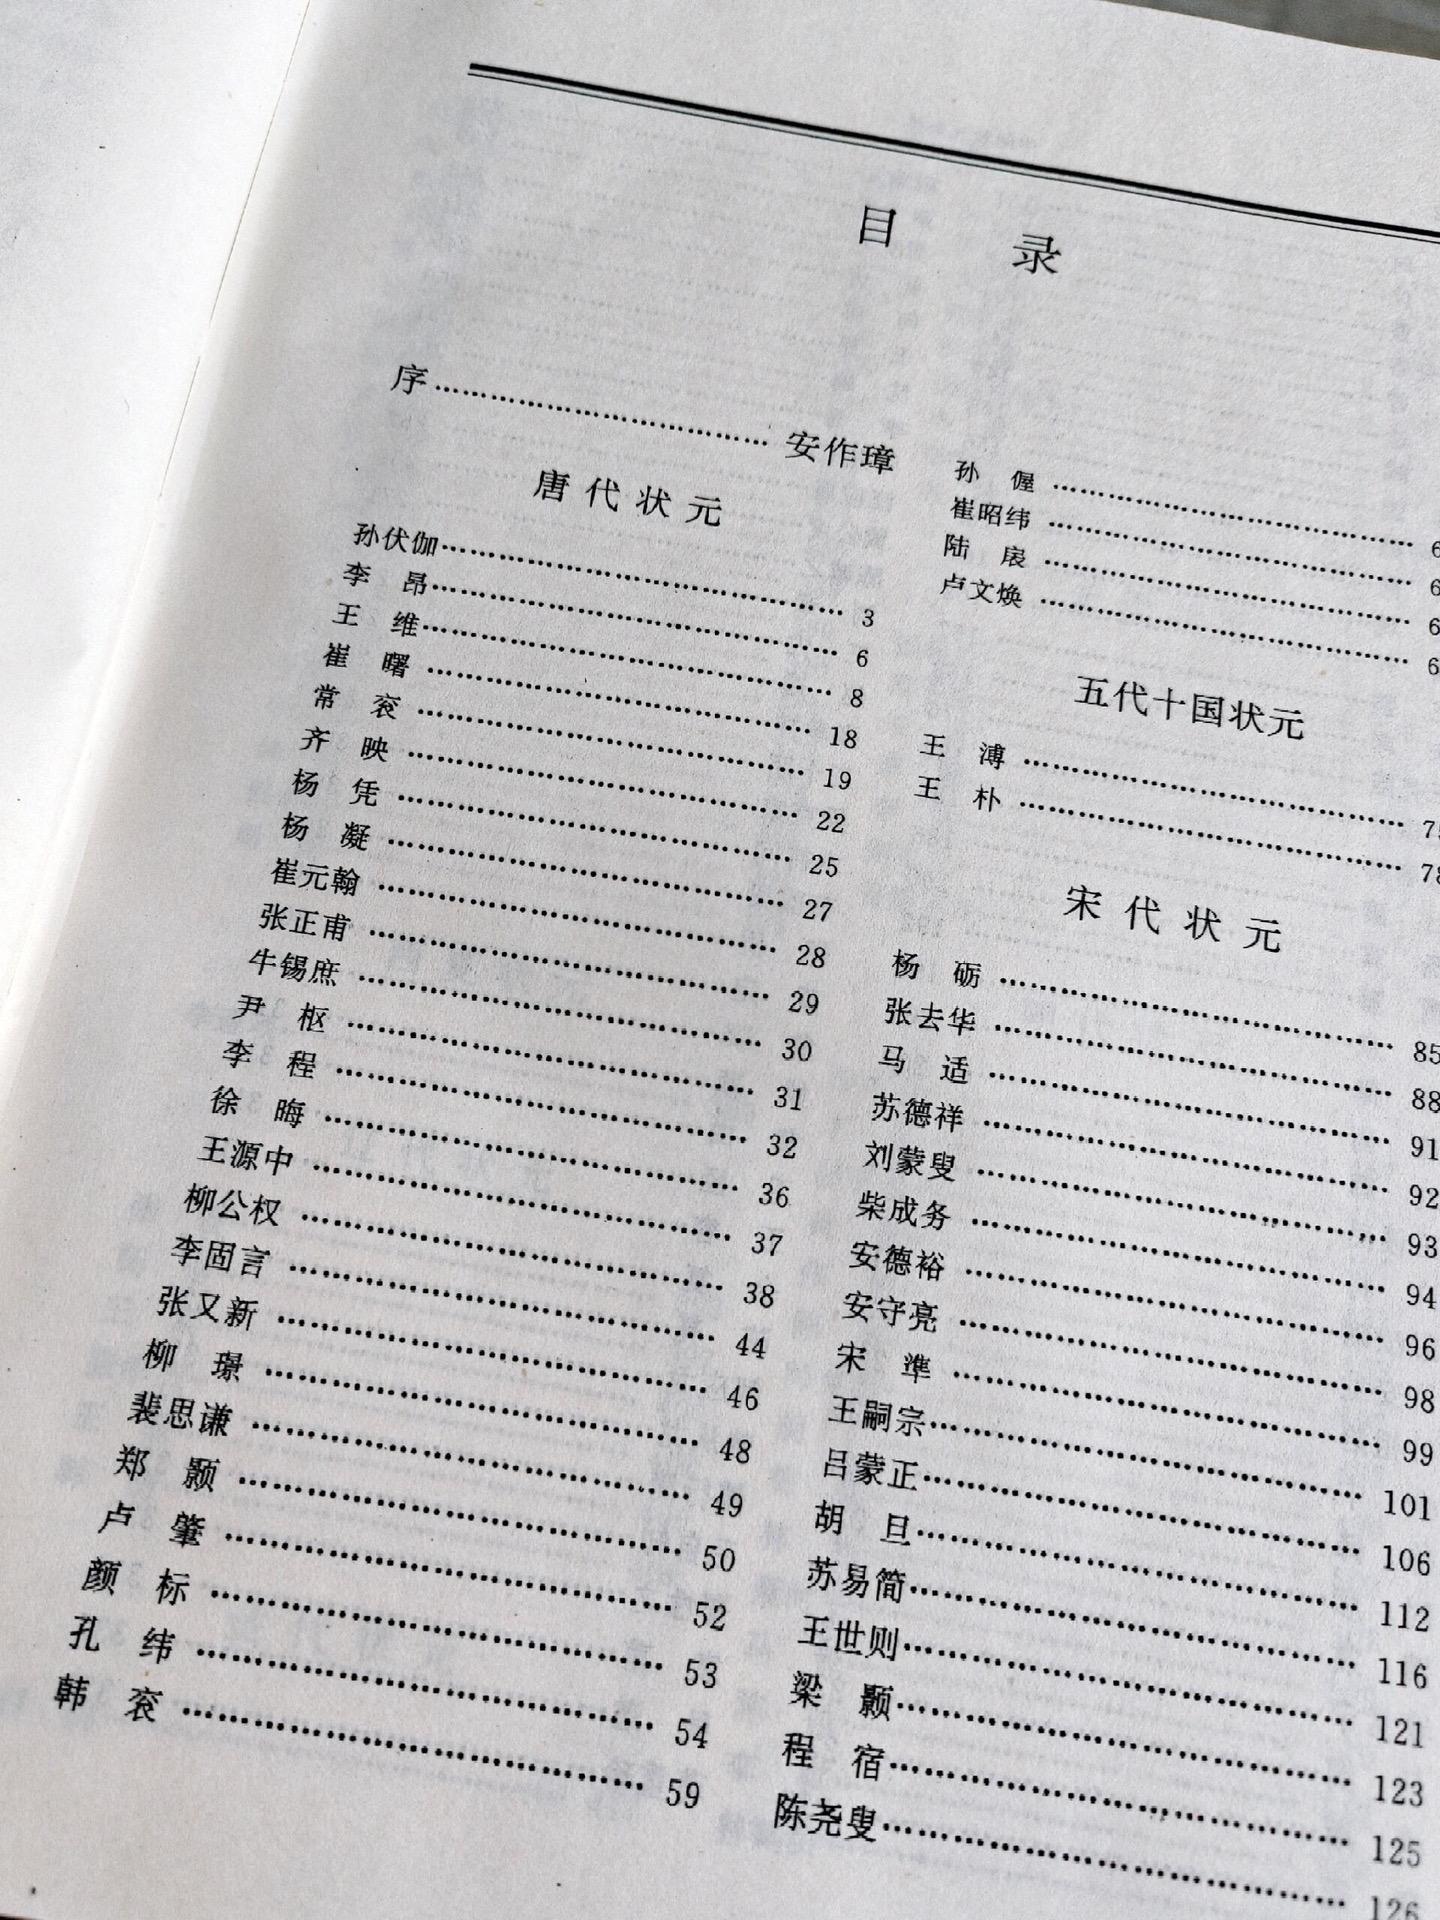 目 录
序……………………………安作璋
唐代状元
孙伏伽…………………………… 3
李 昂…………………………… 6
王 维…………………………… 8
崔 曙…………………………… 18
常 衮…………………………… 19
齐 映…………………………… 22
杨 凭…………………………… 25
杨 凝…………………………… 27
崔元翰…………………………… 28
张正甫…………………………… 29
牛锡庶…………………………… 30
尹 枢…………………………… 31
李 程…………………………… 32
徐 晦…………………………… 36
王源中…………………………… 37
柳公权…………………………… 38
李固言…………………………… 44
张又新…………………………… 46
柳 璟…………………………… 48
裴思谦…………………………… 49
郑 颢…………………………… 50
卢 肇…………………………… 52
颜 标…………………………… 53
孔 纬…………………………… 54
韩 衮…………………………… 59
孙 偓……………………………
崔昭纬……………………………
陆 扆……………………………
卢文焕……………………………
五代十国状元
王 溥……………………………
王 朴…………………………… 78
宋代状元
杨 砺…………………………… 85
张去华…………………………… 88
马 适…………………………… 91
苏德祥…………………………… 92
刘蒙叟…………………………… 93
柴成务…………………………… 94
安德裕…………………………… 96
安守亮…………………………… 98
宋 準…………………………… 99
王嗣宗…………………………… 101
吕蒙正…………………………… 106
胡 旦…………………………… 112
苏易简…………………………… 116
王世则…………………………… 121
梁 颢…………………………… 123
程 宿…………………………… 125
陈尧叟…………………………… 126